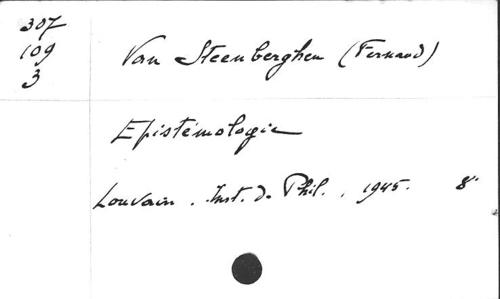 307
109
3
Van Steenberghen (Fernand)
Epistémologie
Louvain. Inst. d. Phil., 1945. 8°